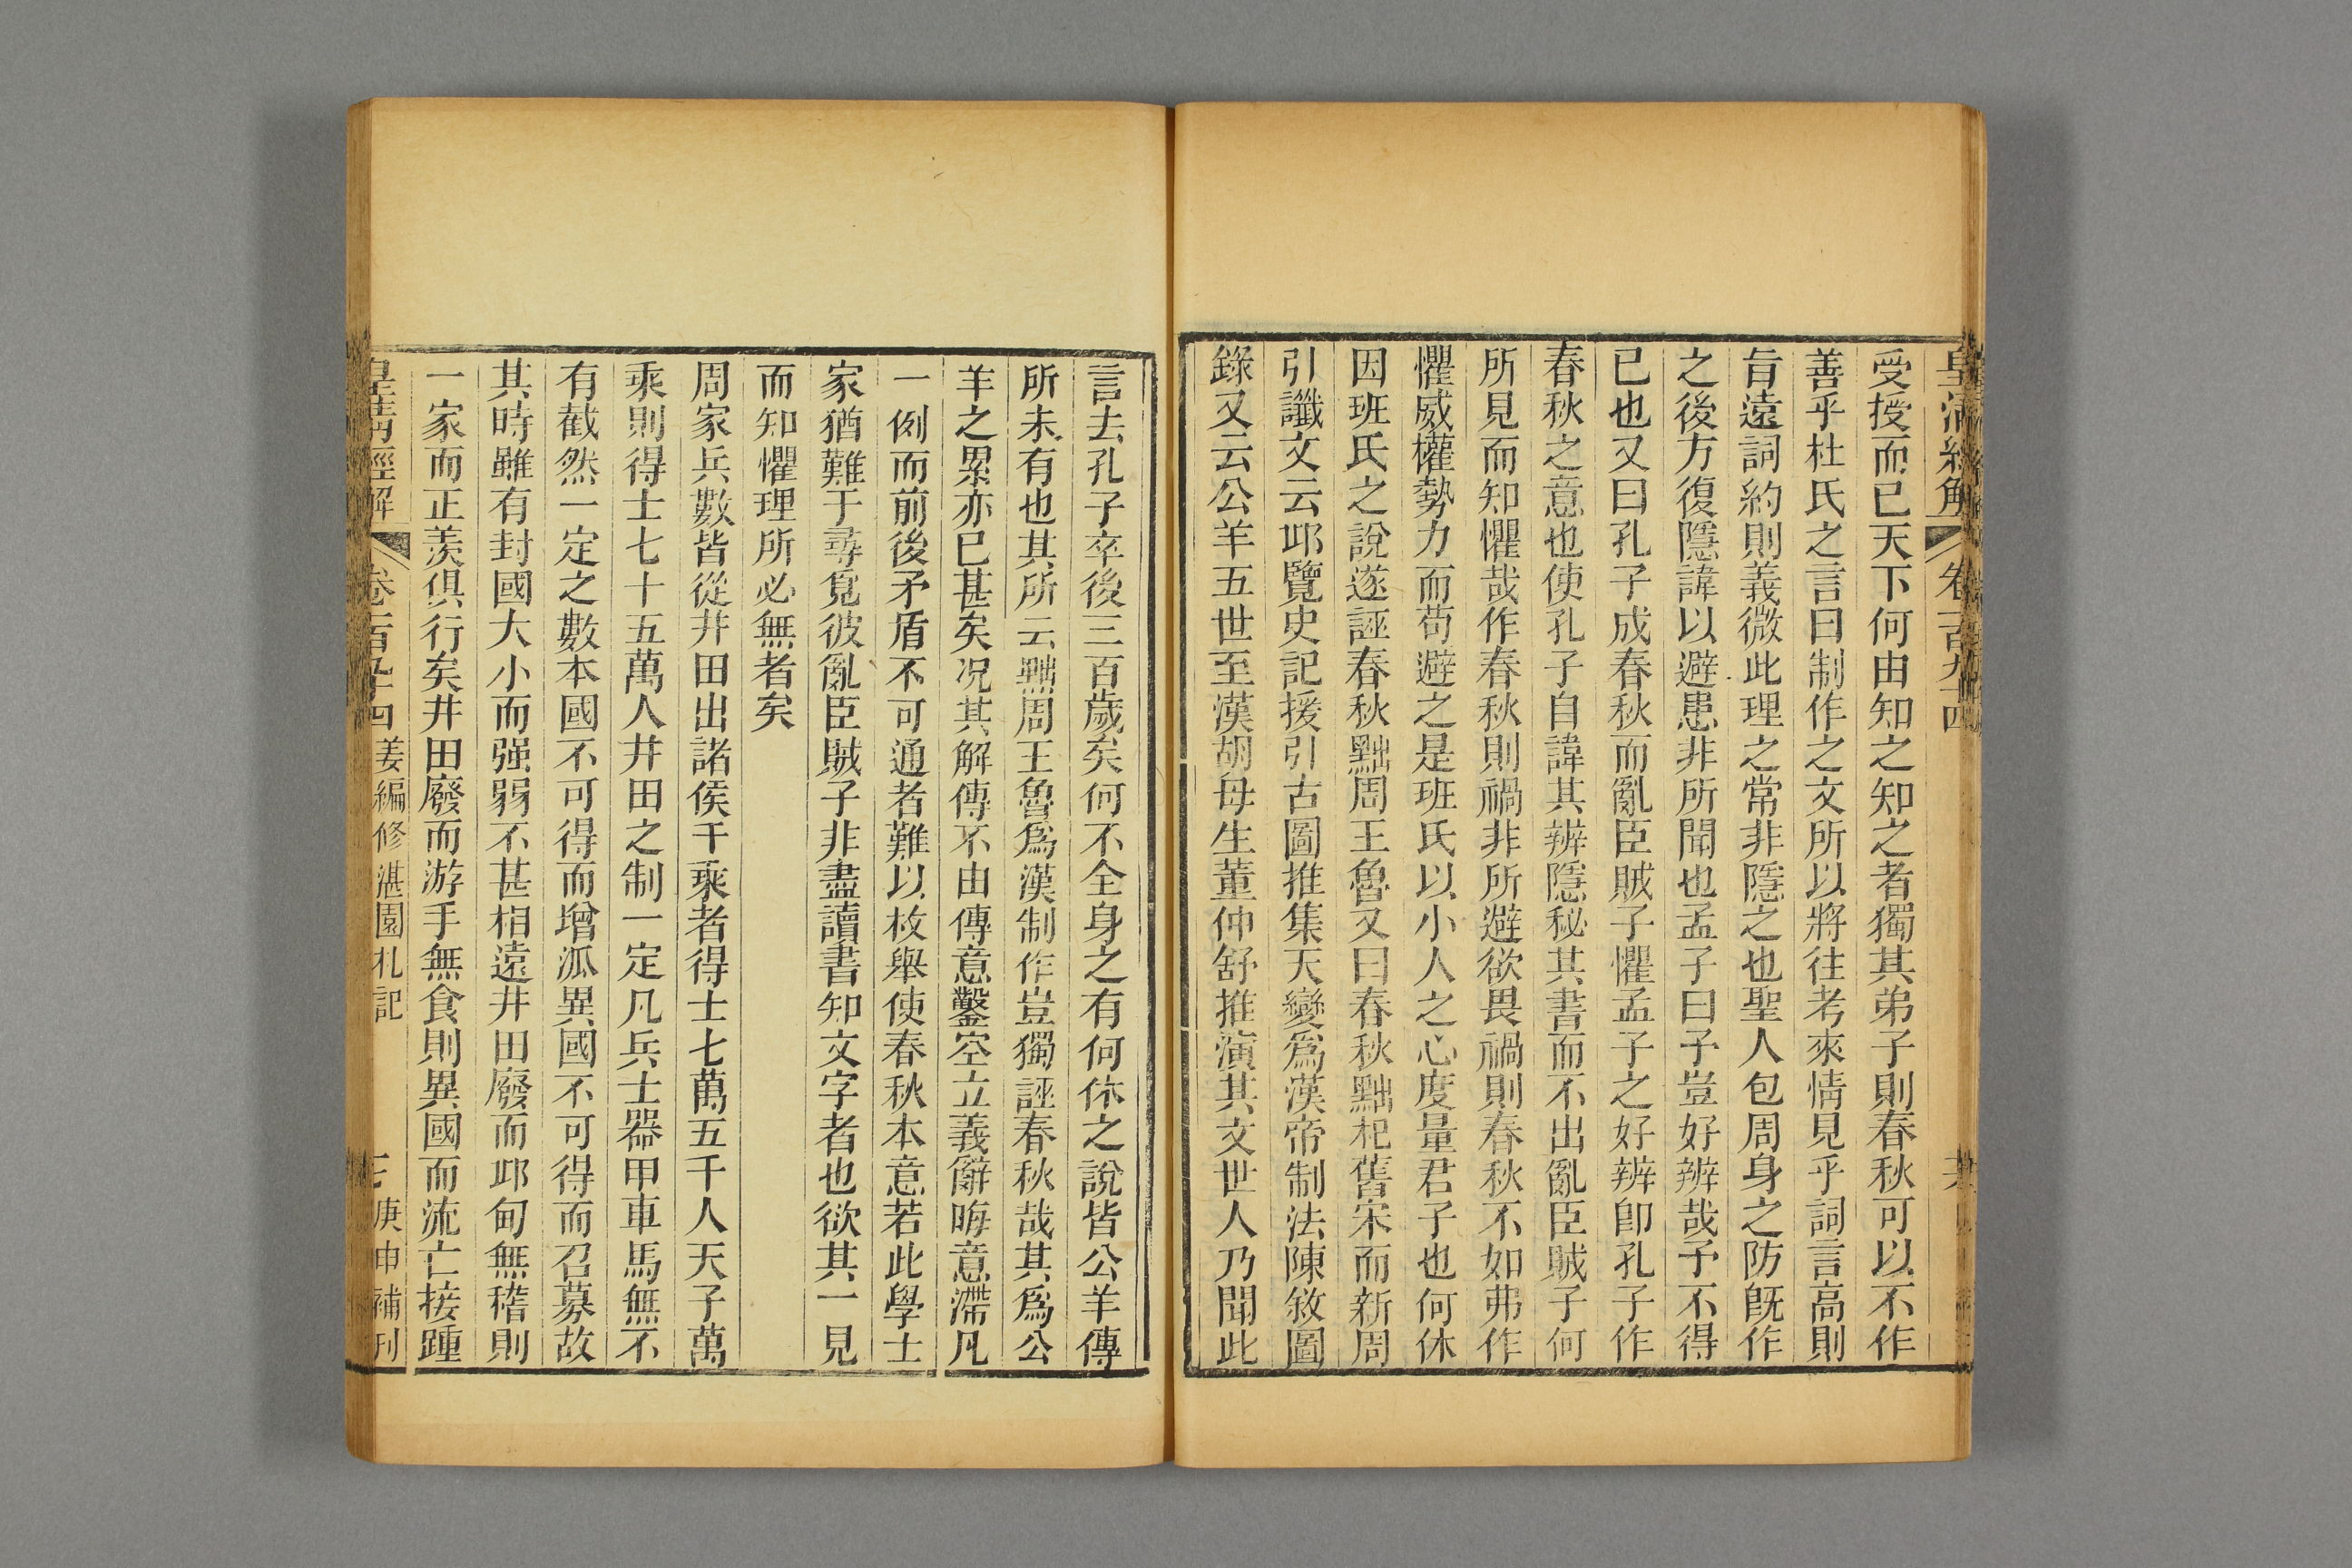 皇清經解 卷一百九十四
受授而已天下何由知之知之者獨其弟子則春秋可以不作
善乎杜氏之言曰制作之文所以將往考來情見乎詞言高則
旨遠詞約則義微此理之常非隱之也聖人包周身之防旣作
之後方復隱諱以避患非所聞也孟子曰予豈好辨哉予不得
已也又曰孔子成春秋而亂臣賊子懼孟子之好辨卽孔子作
春秋之意也使孔子自諱其辨隱秘其書而不出亂臣賊子何
所見而知懼哉作春秋則禍非所避欲畏禍則春秋不如弗作
懼威權勢力而苟避之是班氏以小人之心度量君子也何休
因班氏之說遂誣春秋黜周王魯又曰春秋黜杞舊宋而新周
引讖文云邱覽史記援引古圖推集天變爲漢帝制法陳敘圖
錄又云公羊五世至漢胡母生董仲舒推演其文世人乃聞此
言去孔子卒後三百歲矣何不全身之有何休之說皆公羊傳
所未有也其所云黜周王魯爲漢制作豈獨誣春秋哉其爲公
羊之累亦已甚矣况其解傳不由傳意鑿空立義辭晦意滯凡
一例而前後矛盾不可通者難以枚舉使春秋本意若此學士
家猶難于尋覓彼亂臣賊子非盡讀書知文字者也欲其一見
而知懼理所必無者矣
周家兵數皆從井田出諸侯千乘者得士七萬五千人天子萬
乘則得士七十五萬人井田之制一定凡兵士器甲車馬無不
有截然一定之數本國不可得而增派異國不可得而召募故
其時雖有封國大小而强弱不甚相遠井田廢而邱甸無稽則
一家而正羨俱行矣井田廢而游手無食則異國而流亡接踵
皇淸經解 卷一百九十四 姜編修湛園札記 庚申補刊